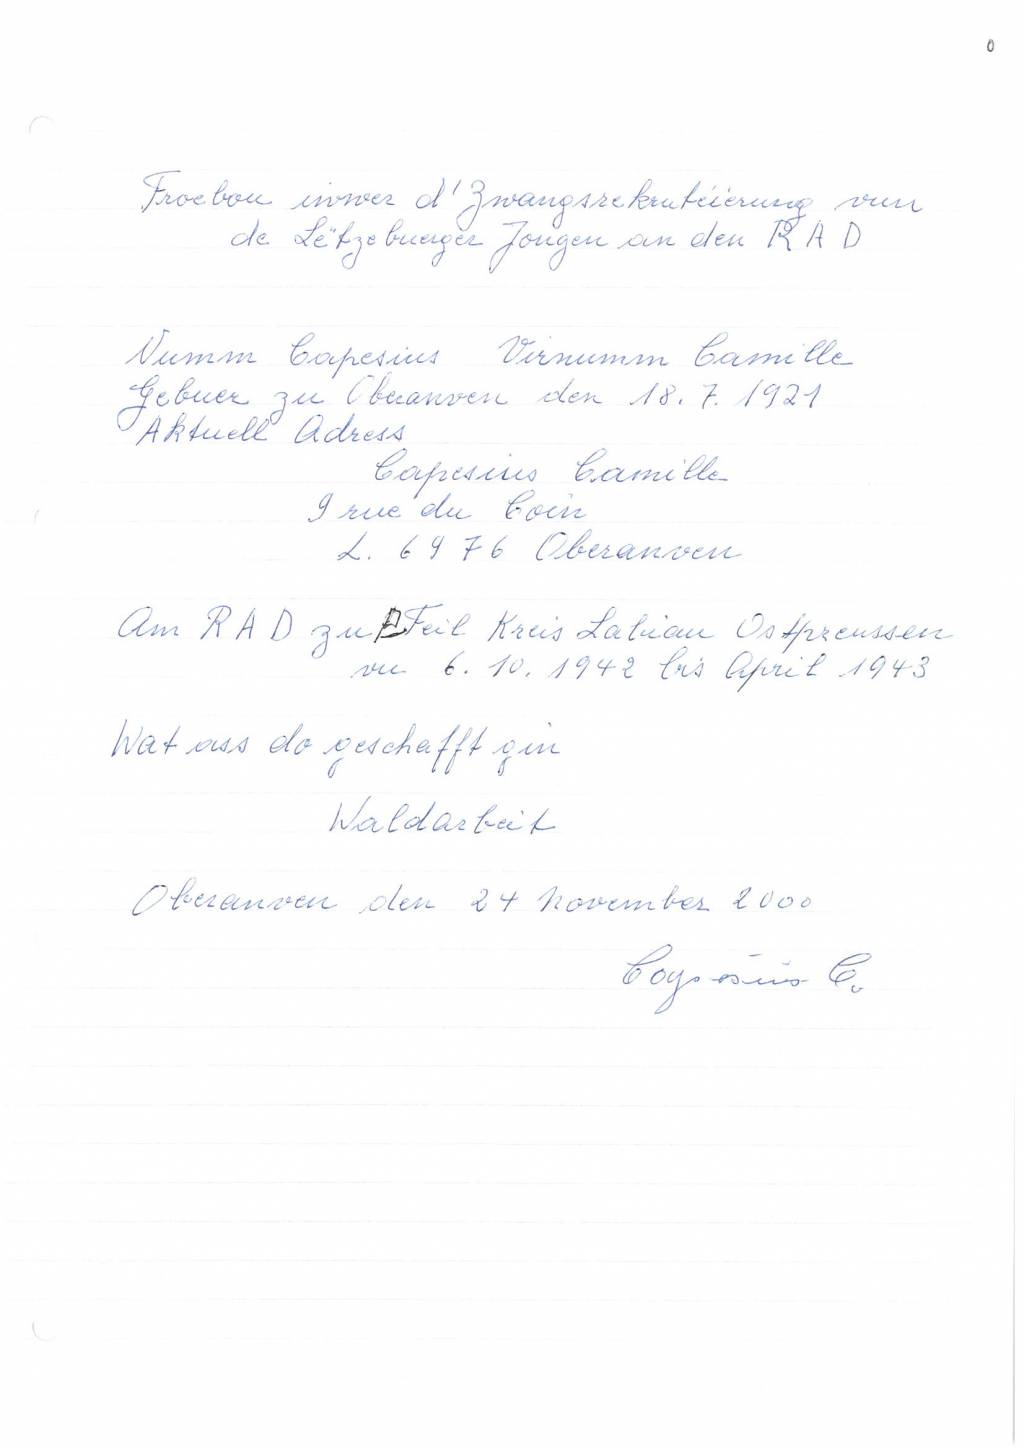 0
Froebou iwwer d'Zwangsrekrutéierung vun
de Lëtzebuerger Jongen an den RAD
Numm Capesius Virnumm Camille
Gebuer zu Oberanven den 18. 7. 1921
Aktuell Adress
Capesius Camille
9 rue du Coin
L. 6976 Oberanven
Am RAD zu Kreis Labiau Ostpreussen
vu 6. 10. 1942 bis April 1943
Wat ass do geschafft gin
Waldarbeit
Oberanven den 24 November 2000
Capesius C.